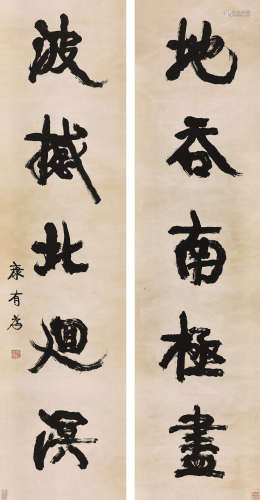 地吞南極盡
波撼北廻溟
康有為